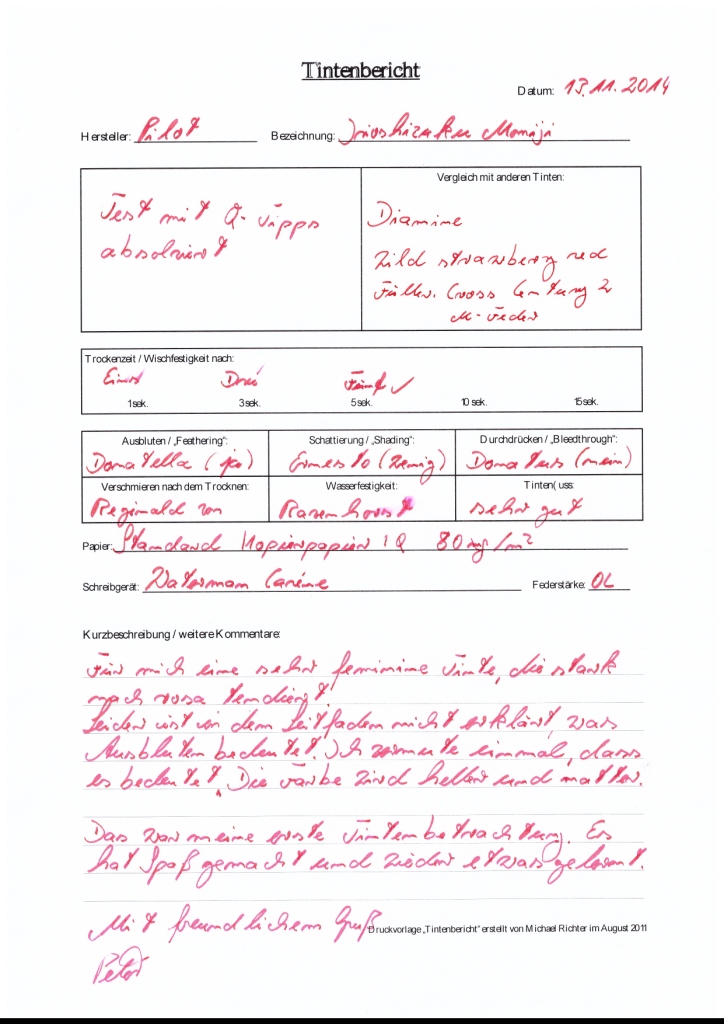 Tintenbericht
Datum: 13.11.2014
Hersteller: Pilot Bezeichnung: Iroshizuku Momiji
Test mit Q-Tipps
absolviert
Vergleich mit anderen Tinten:
Diamine
Wild strawberry red
Füller. Cross Century 2
M-Feder
Trockenzeit / Wischfestigkeit nach:
Eins Drei Fünf ✓
1sek. 3sek. 5sek. 10 sek. 15sek.
Ausbluten / „Feathering“: Schattierung / „Shading“: Durchdrücken / „Bleedthrough“:
Donatella (ja) Ernesto (wenig) Donatus (nein)
Verschmieren nach dem Trocknen: Wasserfestigkeit: Tinten( uss:
Reginald von Rasenhorst sehr gut
Papier: Standard Kopierpapier IQ 80mg/m²
Schreibgerät: Waterman Carène Federstärke: OL
Kurzbeschreibung / weitere Kommentare:
Für mich eine sehr feminine Tinte, die stark
nach rosa tendiert.
Leider ist in dem Leitfaden nicht erklärt, was
Ausbluten bedeutet. Ich vermute einmal, dass
es bedeutet, Die Farbe wird heller und matter.
Das war meine erste Tintenbetrachtung. Es
hat Spaß gemacht und wieder etwas gelernt.
Mit freundlichem Gruß
Druckvorlage „Tintenbericht“ erstellt von Michael Richter im August 2011
Peter